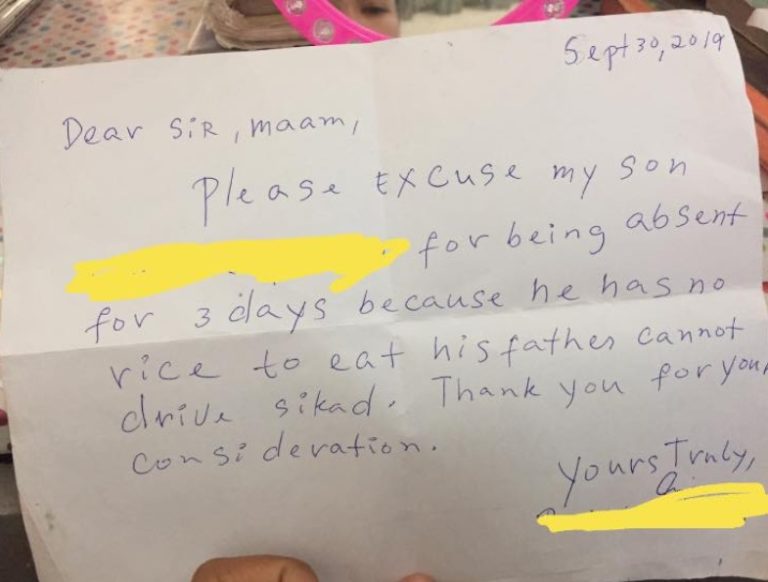 Sept 30, 2019
Dear SiR, maam,
Please Excuse my son
for being absent
for 3 days because he has no
rice to eat his father cannot
drive sikad. Thank you for your
consideration.
Yours Truly,